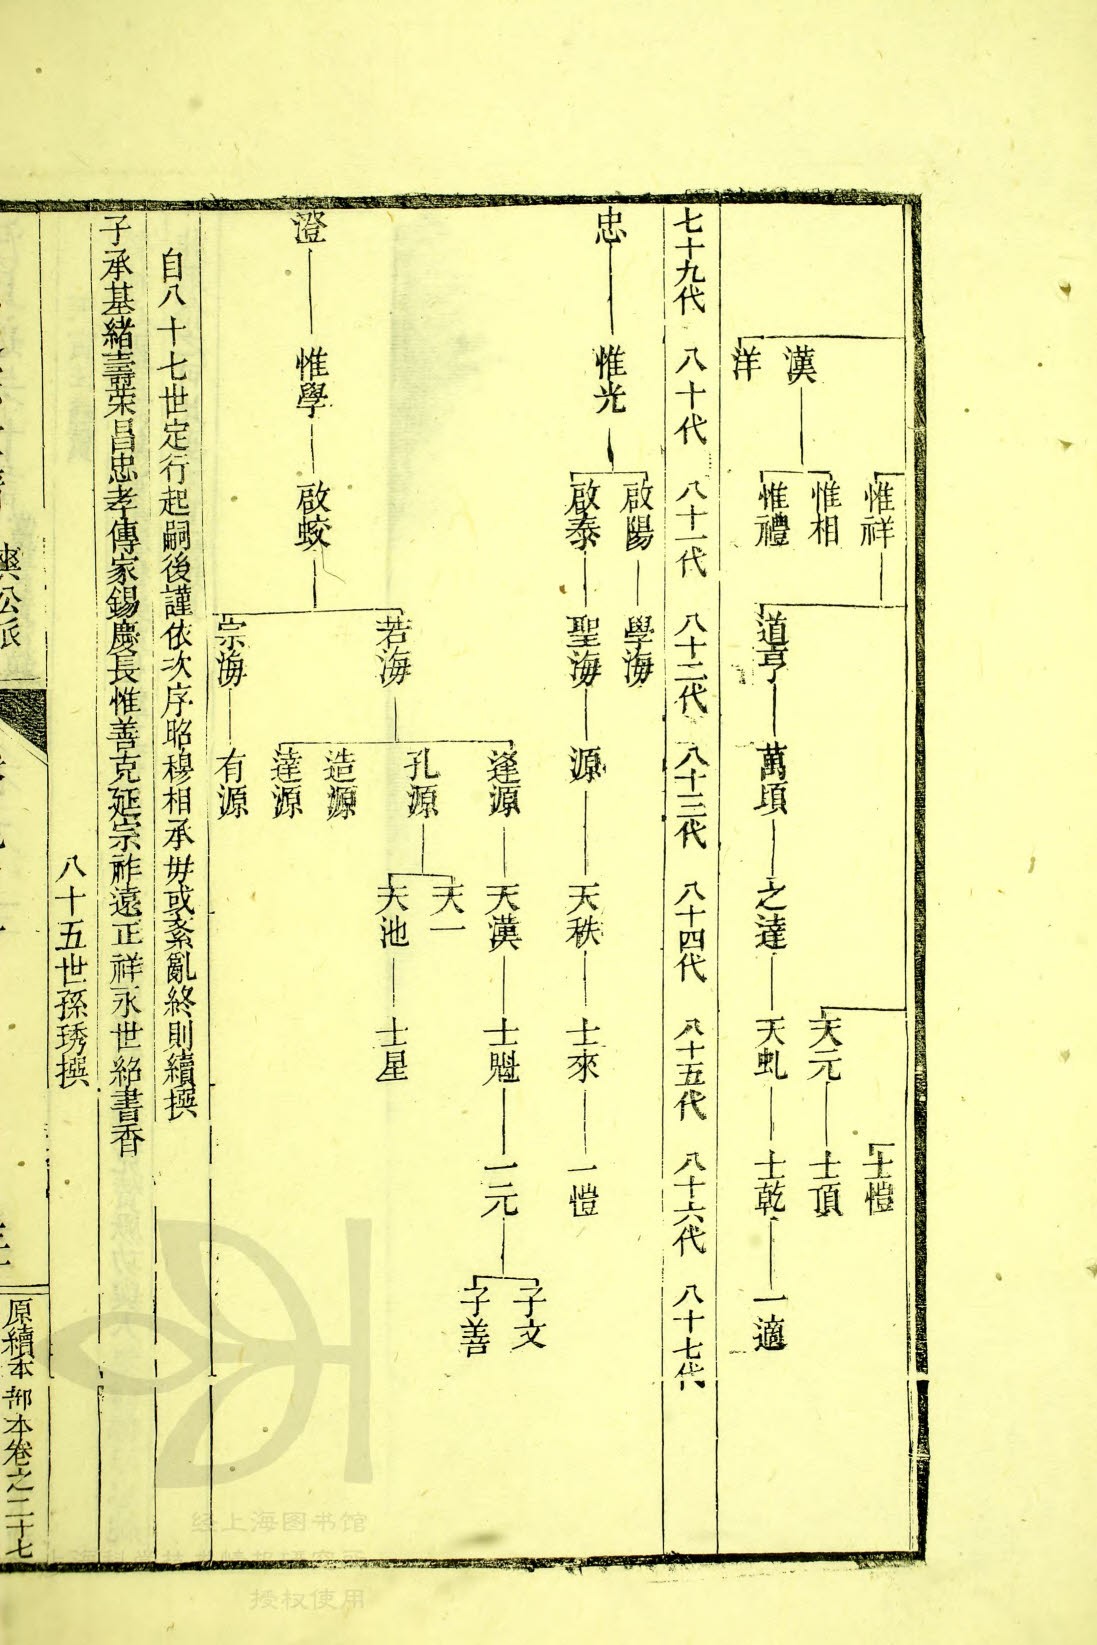 惟祥
士愷
惟相
天元
士頂
漢
惟禮
洋
道亨
萬頃
之達
天虬
士乾
一適
七十九代
八十代
八十一代
八十二代
八十三代
八十四代
八十五代
八十六代
八十七代
忠
惟光
啟陽
學海
啟泰
聖海
源
天秩
士來
一愷
子文
逢源
天漢
士魁
一元
子善
天一
孔源
若海
天池
士星
造源
澄
惟學
啟蛟
達源
宗海
有源
自八十七世定行起嗣後謹依次序昭穆相承毋或紊亂終則續撰
子承基緒壽荣昌忠孝傳家錫慶長惟善克延宗祚遠正祥永世紹書香
八十五世孫琇撰
公派
原續本部本卷之二十七
经上海图书馆
授权使用